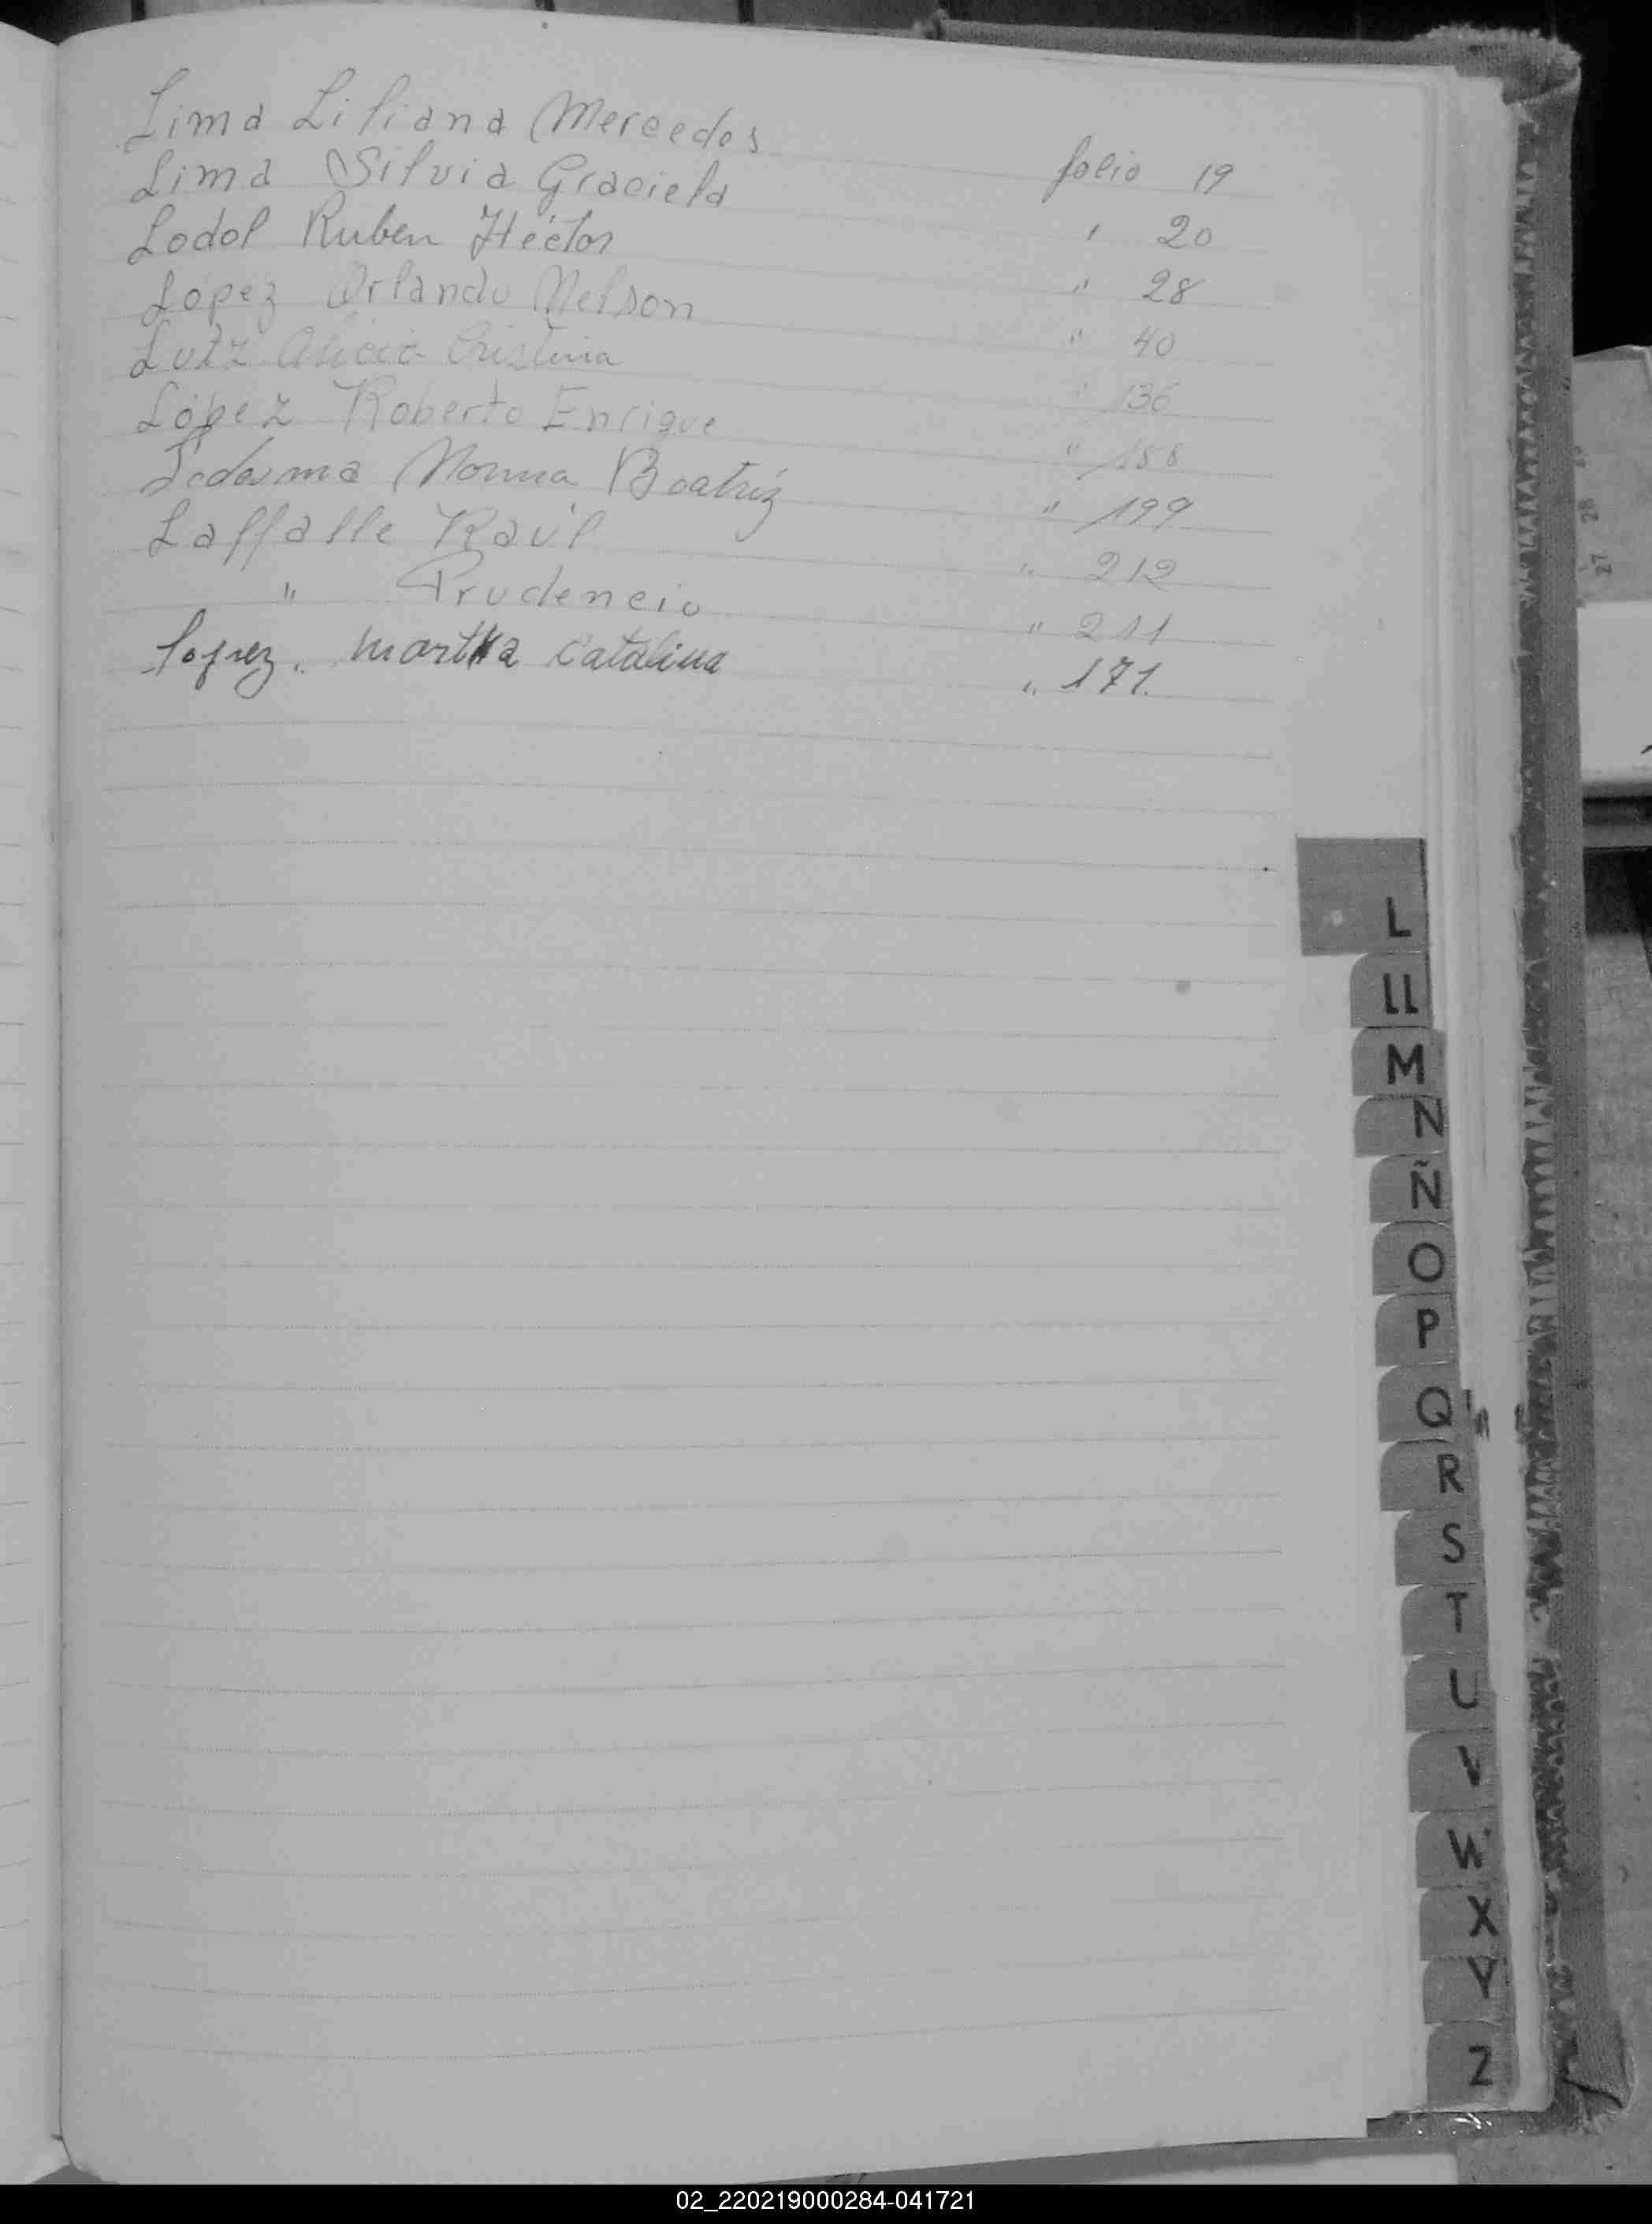 Lima Liliana Mercedes folio 19
Lima Silvia Graciela " 20
Lodol Ruben Héctor " 28
López Orlando Nelson " 40
Lutz Alicia Cristina " 136
López Roberto Enrique "
Ledesma Norma Beatriz " 199
Laffalle Raúl " 212
" Prudencio " 211
Lopez. Martha Catalina " 171.
L
LL
M
N
Ñ
O
P
Q
R
S
T
U
V
W
X
Y
Z
28
27
02_220219000284-041721